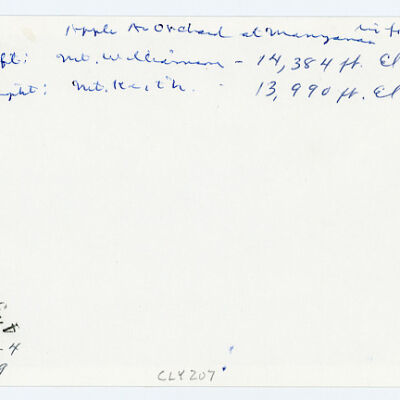 Apple Orchard at Manzanar in fo
ft: Mt. Williamson - 14,384 ft. El
ght: Mt. Keith - 13,990 ft. El
-4
9
CLY207